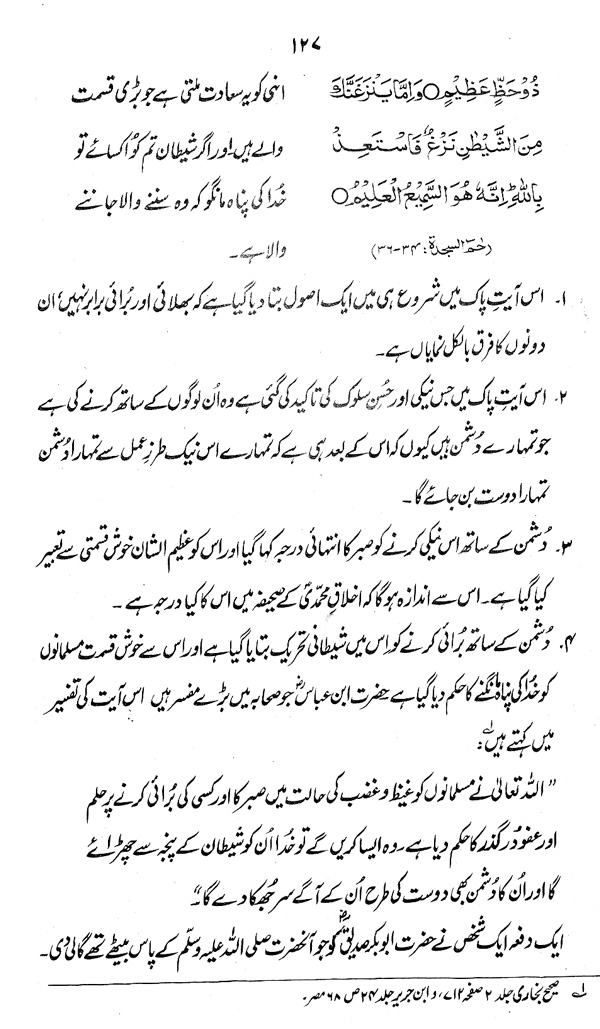 ۱۲۷
ذُوْ حَظٍّ عَظِیْمٍ ○ وَاِمَّا یَنْزَغَنَّكَ
مِنَ الشَّیْطٰنِ نَزْغٌ فَاسْتَعِذْ
بِاللهِ ؕ اِنَّهٗ هُوَ السَّمِیْعُ الْعَلِیْمُ ○
(حٰمٓ السجدۃ: ۳۴-۳۶)
انہی کو یہ سعادت ملتی ہے جو بڑی قسمت
والے ہیں اور اگر شیطان تم کو اُکسائے تو
خدا کی پناہ مانگو کہ وہ سننے والا جاننے
والا ہے۔
۱۔ اس آیتِ پاک میں شروع ہی میں ایک اصول بتا دیا گیا ہے کہ بھلائی اور بُرائی برابر نہیں، ان
دونوں کا فرق بالکل نمایاں ہے۔
۲۔ اس آیتِ پاک میں جس نیکی اور حُسنِ سلوک کی تاکید کی گئی ہے وہ اُن لوگوں کے ساتھ کرنے کی ہے
جو تمہارے دُشمن ہیں کیوں کہ اس کے بعد ہی ہے کہ تمہارے اس نیک طرزِ عمل سے تمہارا دُشمن
تمہارا دوست بن جائے گا۔
۳۔ دُشمن کے ساتھ اس نیکی کرنے کو صبر کا انتہائی درجہ کہا گیا اور اس کو عظیم الشان خوش قسمتی سے تعبیر
کیا گیا ہے۔ اس سے اندازہ ہو گا کہ اخلاقِ محمدیؐ کے صحیفہ میں اس کا کیا درجہ ہے۔
۴۔ دُشمن کے ساتھ بُرائی کرنے کو اس میں شیطانی تحریک بتایا گیا ہے اور اس سے خوش قسمت مسلمانوں
کو خُدا کی پناہ مانگنے کا حکم دیا گیا ہے حضرت ابن عباسؓ جو صحابہ میں بڑے مفسر ہیں اس آیت کی تفسیر
میں کہتے ہیں:؂۱
”اللہ تعالیٰ نے مسلمانوں کو غیظ و غضب کی حالت میں صبر کا اور کسی کی بُرائی کرنے پر حلم
اور عفو و درگذر کا حکم دیا ہے۔ وہ ایسا کریں گے تو خُدا اُن کو شیطان کے پنجہ سے چھڑائے
گا اور اُن کا دُشمن بھی دوست کی طرح اُن کے آگے سر جُھکا دے گا۔“
ایک دفعہ ایک شخص نے حضرت ابوبکر صدیقؓ کو جو آنحضرت صلی اللہ علیہ وسلّم کے پاس بیٹھے تھے گالی دی۔
؂۱ صحیح بخاری جلد ۲ صفحہ ۷۱۲، و ابن جریر جلد ۲۴ ص ۶۸ مصر۔